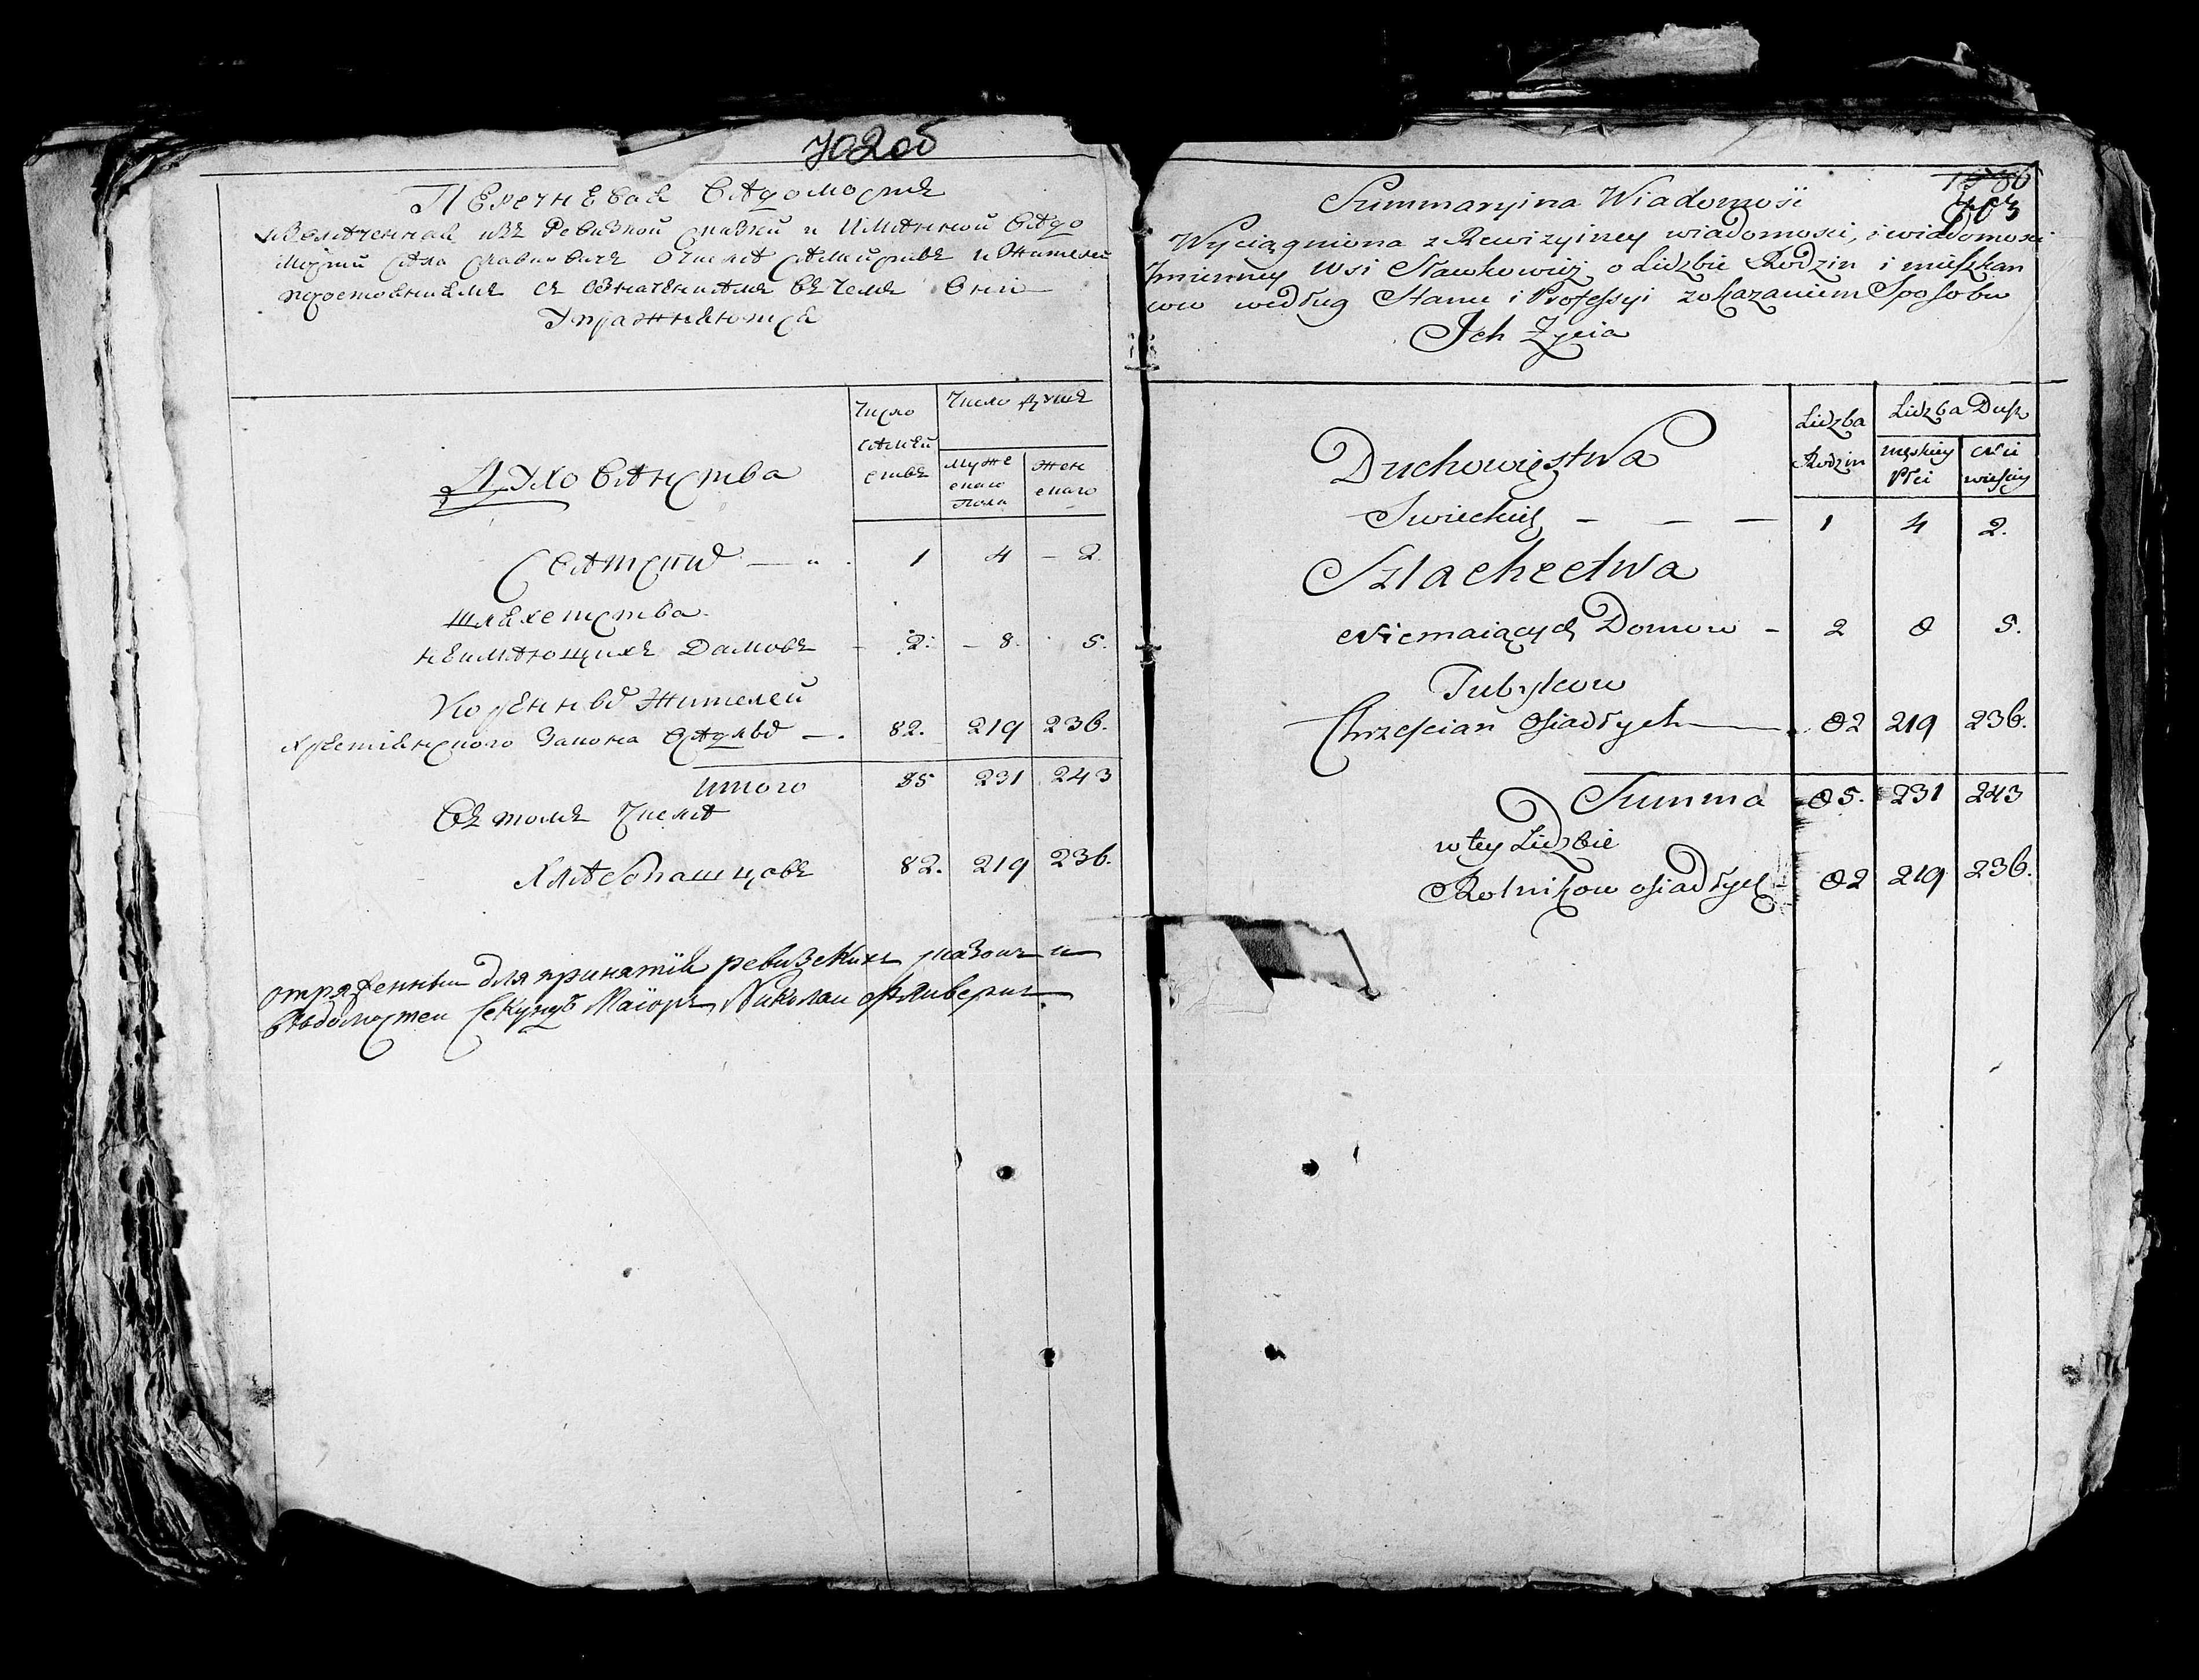 702об
Перечневая вѣдомость
извлеченная изъ Ревизкой сказки и Имянной вѣдо
мости села Славковичь о числѣ семействъ и Жителей
съ означениемъ въ чемъ они
Упражняются
Духовѣнства
Число семей ствъ
Число душъ
Муже скаго пола
Жен скаго
Свѣтски — 1 4 – 2.
шляхетства
неимѣющихъ Домовъ – 2: – 8. 5.
Коренны Жителей
Християнского Закона осѣдлы — . 82. 219 236.
итого 85 231 243
Въ томъ Числѣ
Хлѣбопашцовъ 82. 219 236.
отряженныи для принятия ревизскихъ сказокъ и
вѣдомостеи Секундъ Маiоръ Николаи
1306
703
Summaryina Wiadomość
Wyciągniona z Rewizyiney wiadomosci, i wiadomosci
Imienney Wsi Sławkowicz o Lidzbie Rodzin i mieszkan
cow według Stanu i Professyi zokazaniem Sposobu
Ich Zycia
Duchowięstwa
Lidzba Rodzin
Lidzba Dusz
męskiey Płci
Nie wieściey
Swieckich — — — 1 4 2.
Szlachectwa
Niemaiących Domow – 2 8 5.
Tubylcow
Chrzescian Osiadłych — 82 219 236.
Summa 85. 231 243
w tey Lidzbie
Rolnikow osiadłych – 82 219 236.